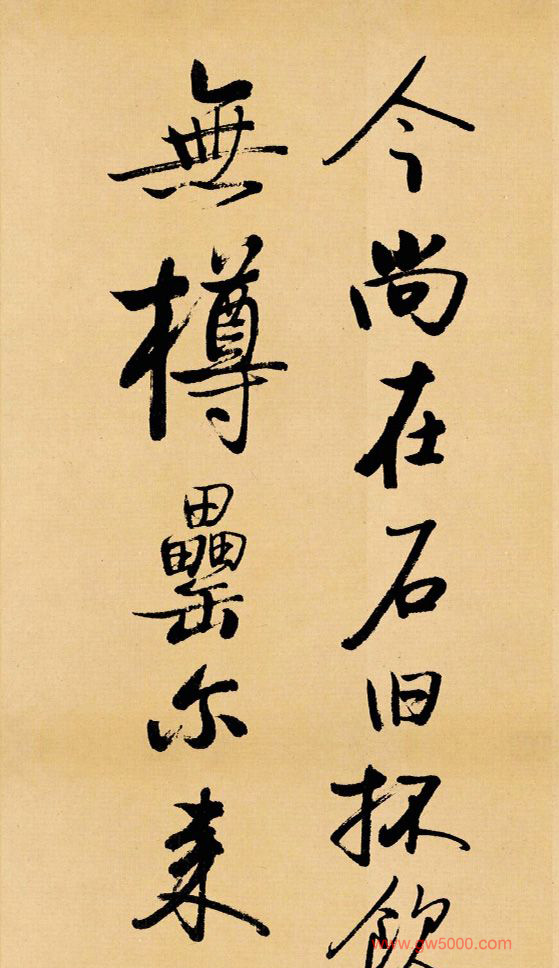 今尚在石旧抔飲
無樽罍尔来
www.gw5000.com